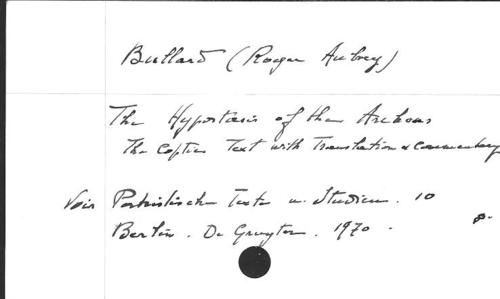 Bullard (Roger Aubrey)
The Hypostasis of the Archons
The Coptic Text with Translation & Commentary
Voir Patristische Texte u. Studien . 10
Berlin . De Gruyter . 1970 .
8°